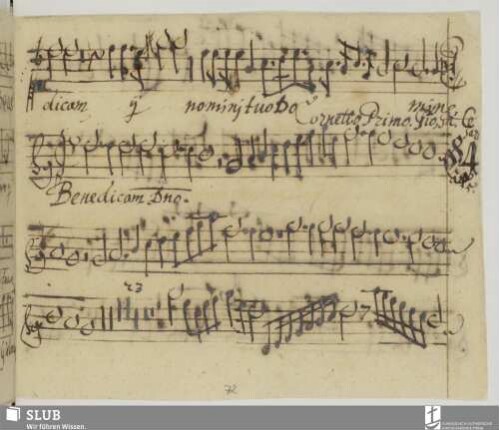 dicam ij nominj tuo Do mine
Cornetto Primo.
4
Benedicam Dno.
23
72
SLUB
Wir führen Wissen.